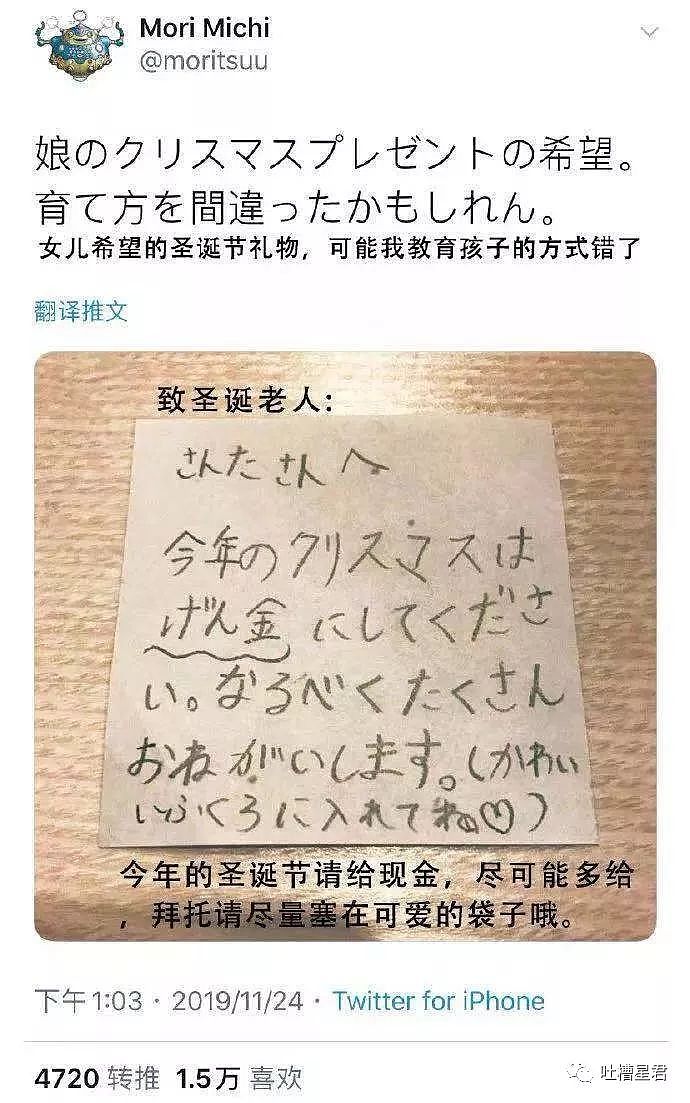 Mori Michi
@moritsuu
娘のクリスマスプレゼントの希望。
育て方を間違ったかもしれん。
女儿希望的圣诞节礼物，可能我教育孩子的方式错了
翻译推文
致圣诞老人:
さんたさんへ
今年のクリスマスは
げん金にしてくださ
い。なるべくたくさん
おねがいします。(かわい
いふくろに入れてね♡)
今年的圣诞节请给现金，尽可能多给
，拜托请尽量塞在可爱的袋子哦。
下午1:03 · 2019/11/24 · Twitter for iPhone
4720 转推 1.5万 喜欢
吐槽星君